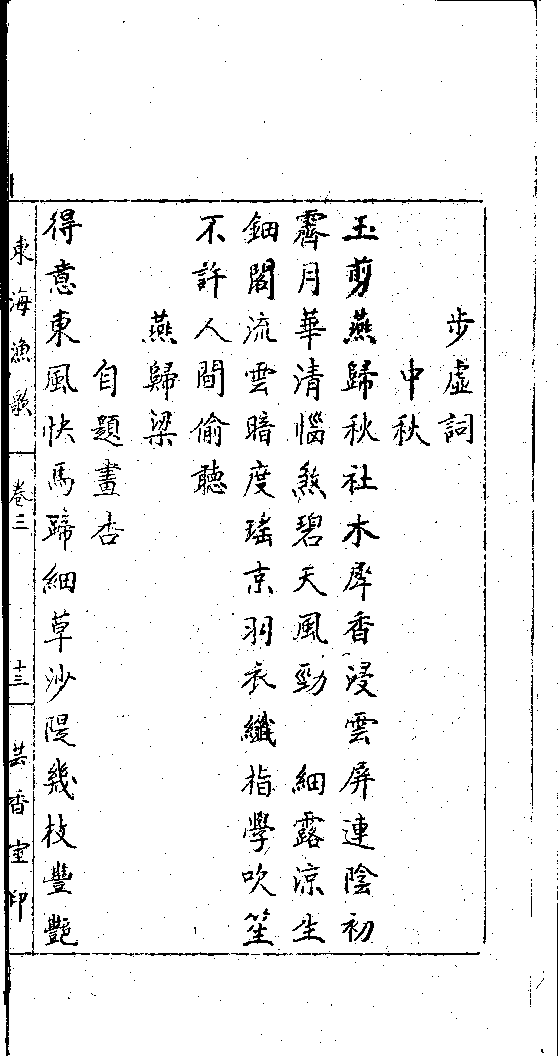 步虛詞
中秋
玉剪燕歸秋社木犀香浸雲屏連陰初
霽月華清惱煞碧天風勁　細露涼生
鈿閣流雲暗度瑤京羽衣纖指學吹笙
不許人間偷聽
燕歸梁
自題畫杏
得意東風快馬蹄細草沙隄幾枝豐艷
東海漁歌　卷三　十三　芸香室印